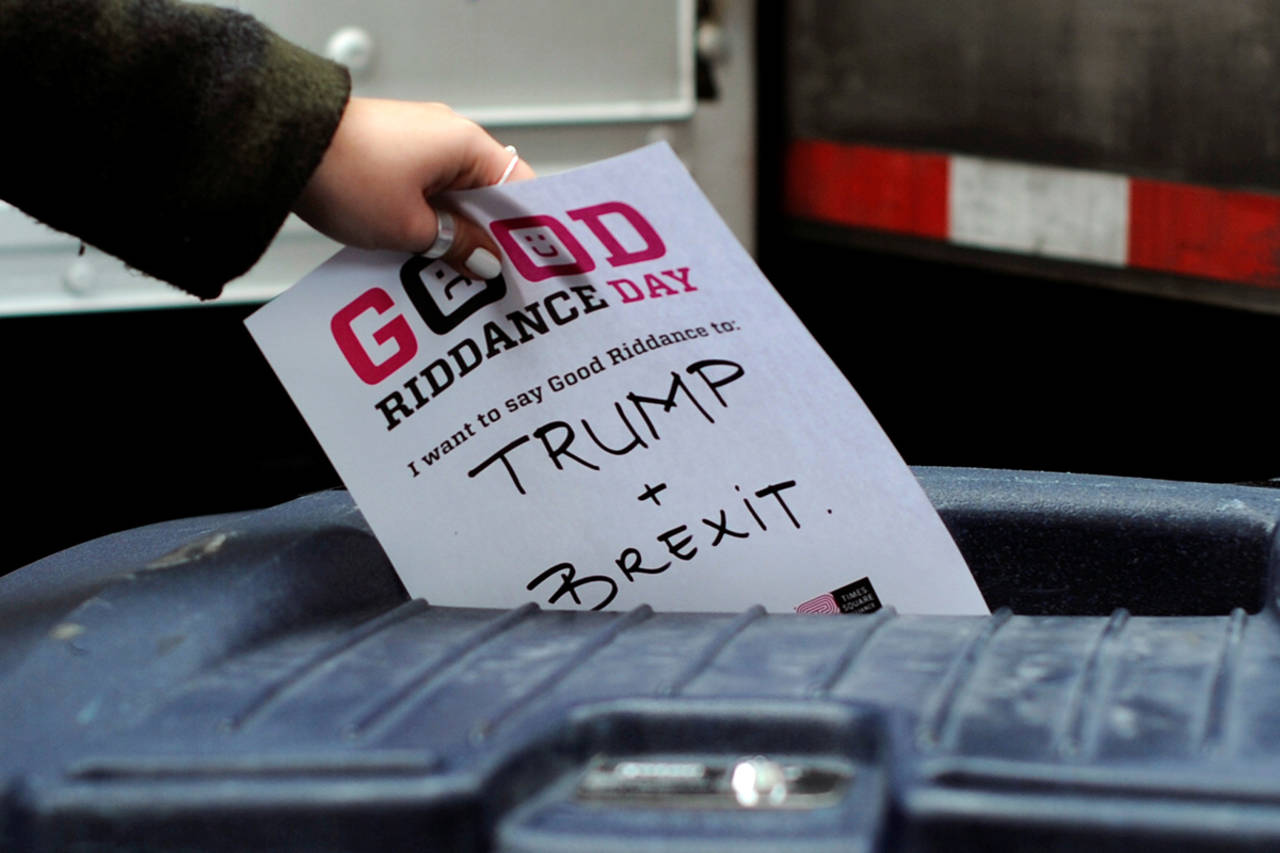 GOOD
RIDDANCE DAY
I want to say Good Riddance to:
TRUMP
+
BREXiT.
TIMES
SQUARE